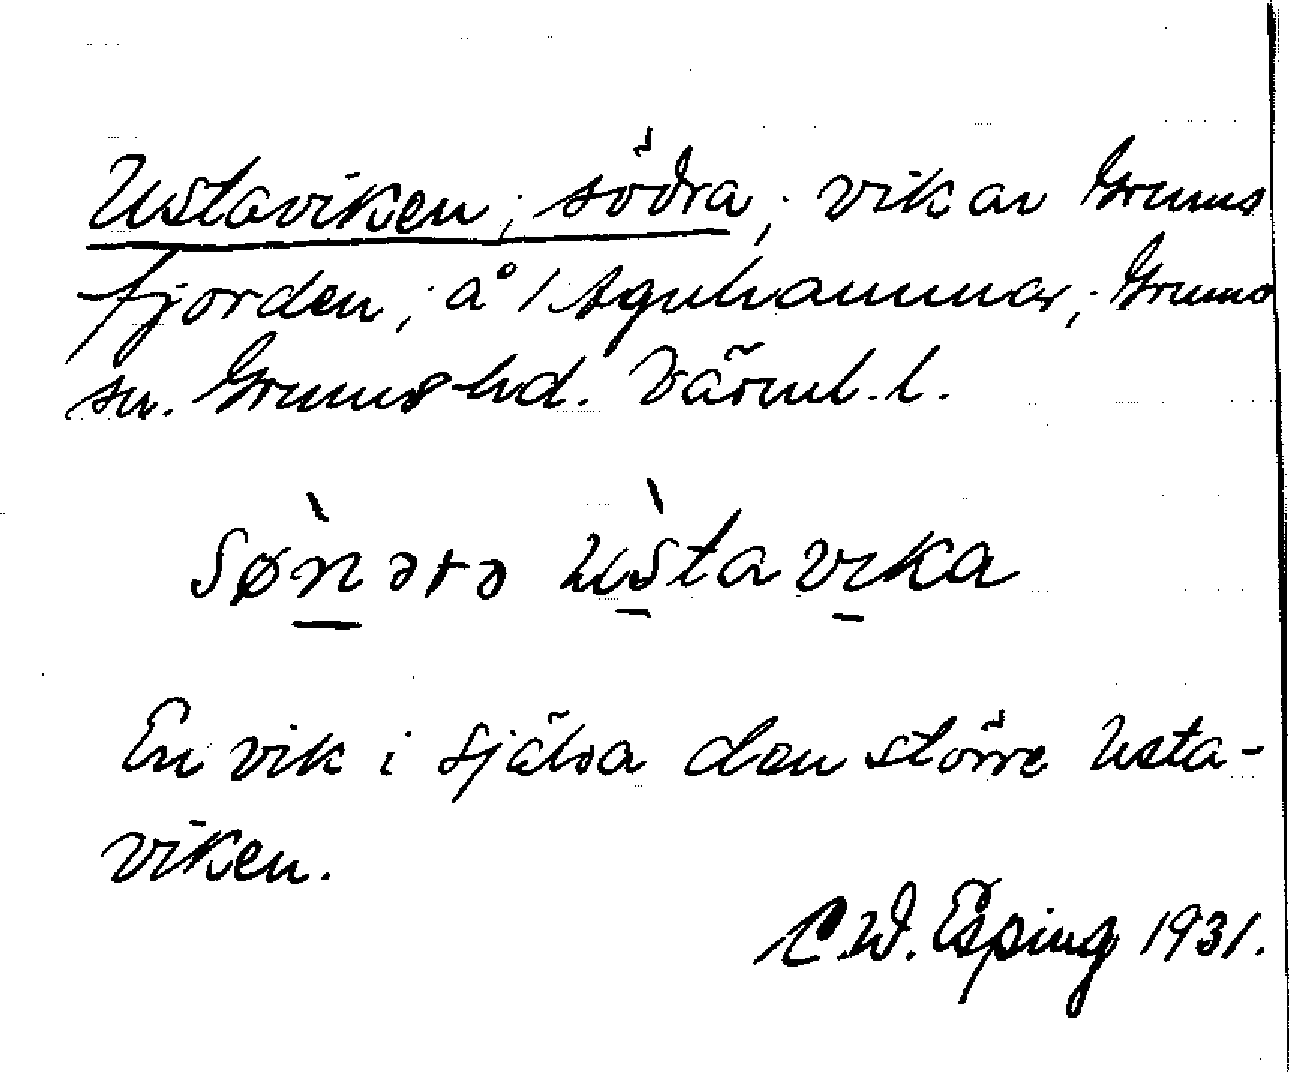 Ustaviken, södra, vik av Grums
fjorden, å /Agnhammar, Grums
sn. Grums hd. Värml. l.
sø̀nərə ùstavika
En vik i själva den större Usta-
viken.
C.W. Esping 1931.